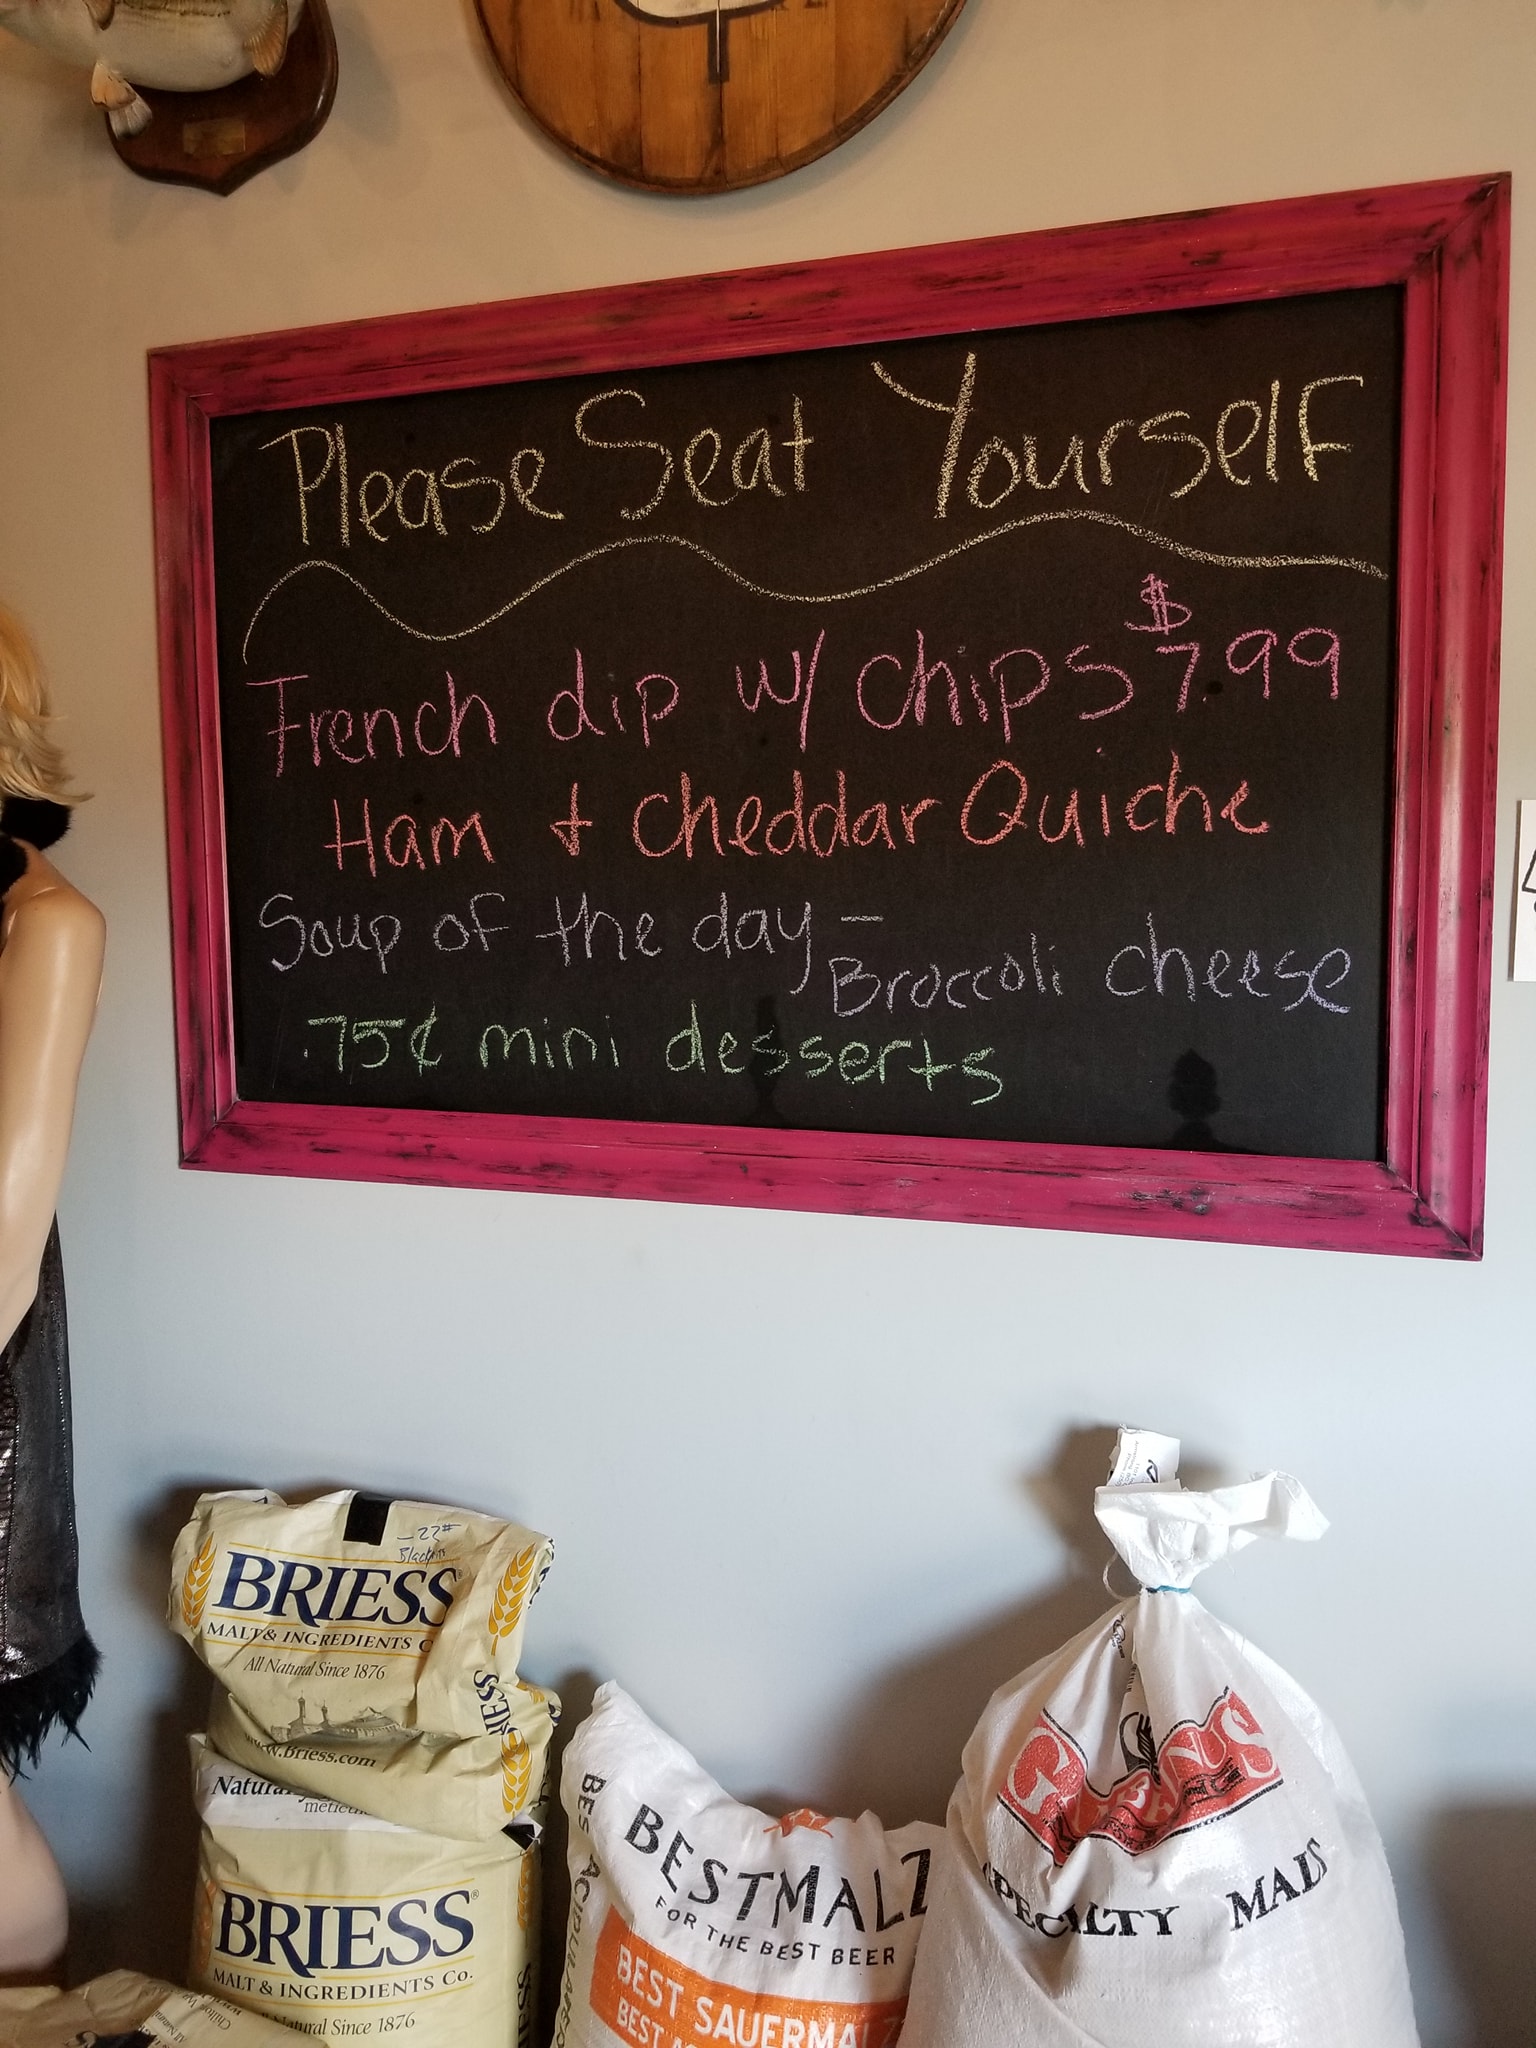 Please Seat Yourself
French dip w/ chips $7.99
Ham + Cheddar Quiche
Soup of the day -
Broccoli cheese
.75¢ mini desserts
-22#
BRIESS
MALT & INGREDIENTS C
All Natural Since 1876
www.Briess.com
Natura
meticu
BRIESS®
MALT & INGREDIENTS Co.
ural Since 1876
BRIESS
BESTMALZ
FOR THE BEST BEER
BEST SAUERMALZ
BEST AC
BES ACIDULA
SPECIALTY MALTS